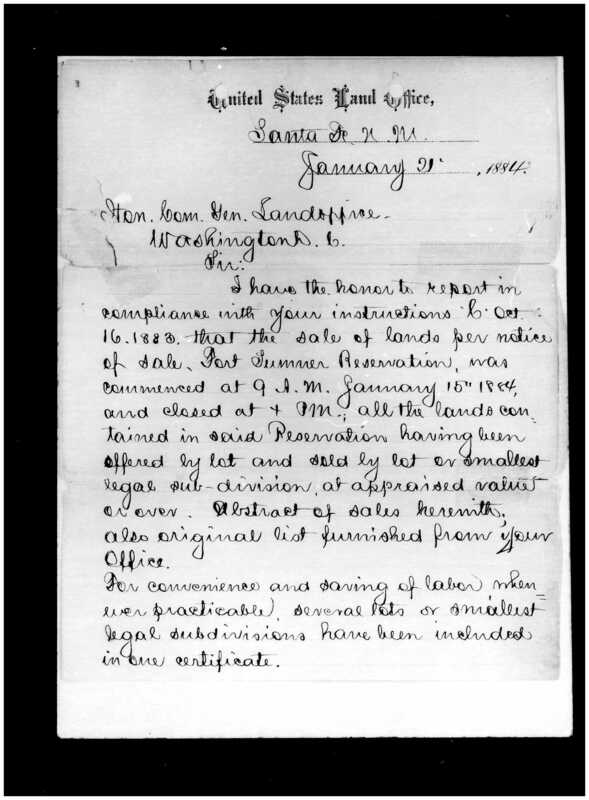 United States Land Office,
Santa Fe N. M.
January 21" , 1884.
Hon. Com. Gen. Landoffice.
Washington D. C.
Sir:
I have the honor to report in
compliance with your instructions "C" Oct.
16. 1883. that the sale of lands per notice
of sale, Fort Sumner Reservation, was
commenced at 9 A.M. January 15" 1884,
and closed at 4 PM.; all the lands con-
tained in said Reservation having been
offered by lot and sold by lot or smallest
legal sub-division, at appraised value
or over. Abstract of sales herewith,
also original list furnished from your
Office.
For convenience and saving of labor, when-
ever practicable, several lots or smallest
legal subdivisions have been included
in one certificate.